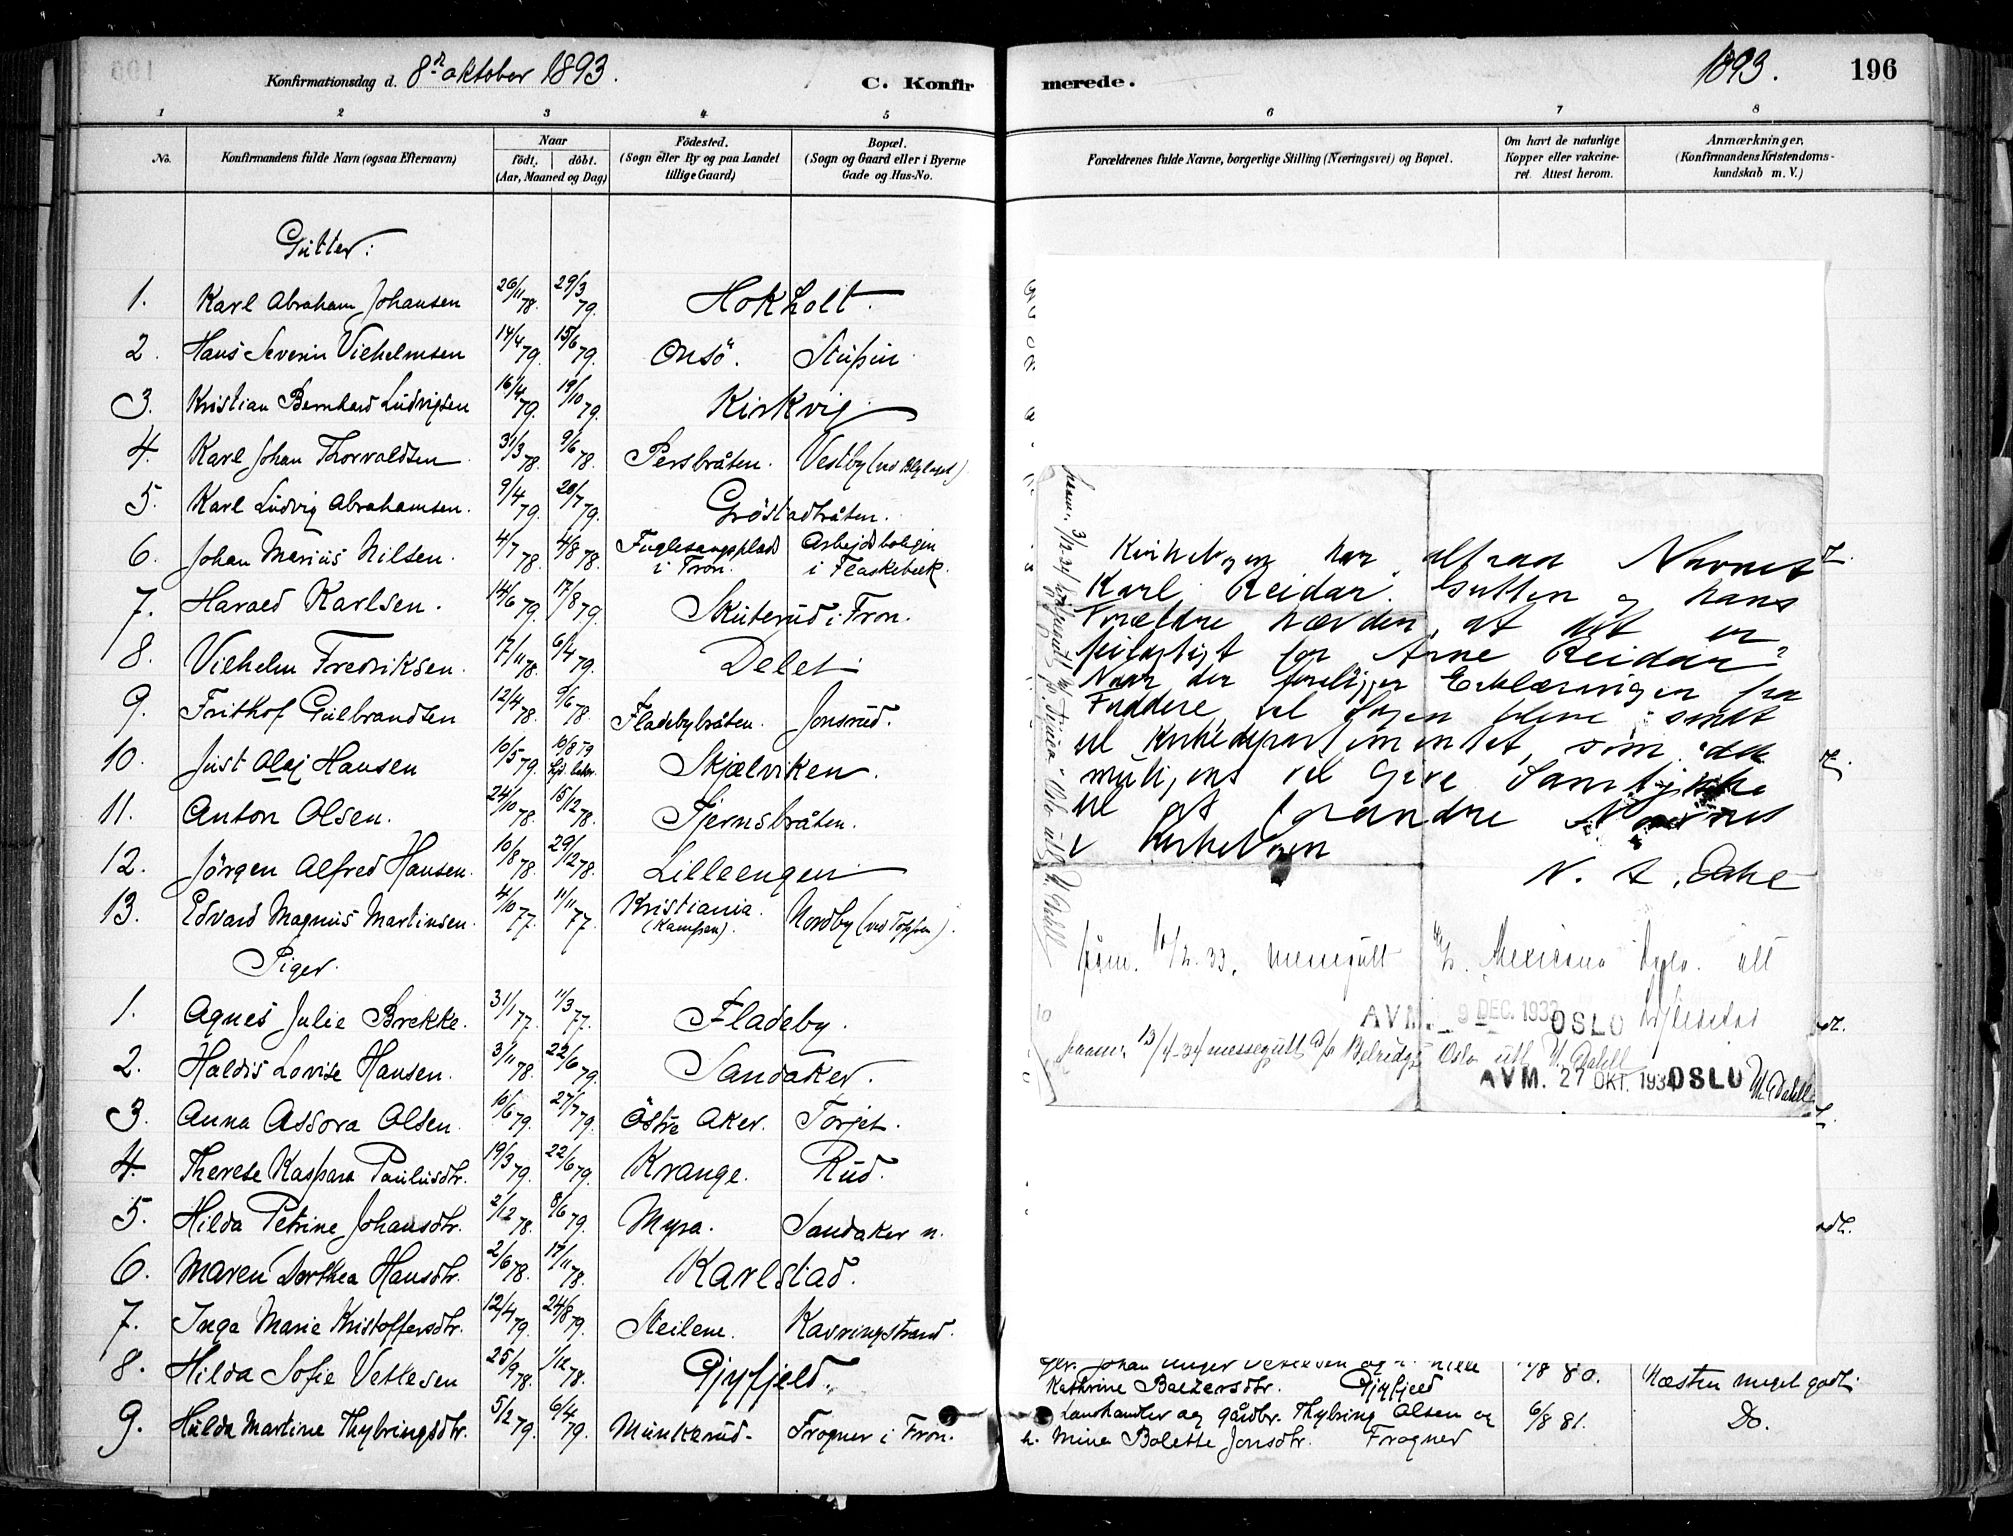 Konfirmationsdag d. 8de oktober 1893.
C. Konfir
1 2 3 4 5
No.
Konfirmandens fulde Navn (ogsaa Efternavn)
Naar
födt. döbt.
(Aar, Maaned og Dag)
Födested.
(Sogn eller By og paa Landet
tillige Gaard)
Bopæl.
(Sogn og Gaard eller i Byerne
Gade og Hus-No.
Gutter:
1. Karl Abraham Johansen 26/11 78. 29/3 79. Hokholt.
2. Hans Severin Vilhelmsen 14/4 79. 15/6 79. Onsö.
3. Kristian Bernhard Ludvigsen 16/4 79. 19/10 79. Kirkvig
4. Karl Johan Thorvaldsen 31/3 78. 9/6 78. Persbråten. Vestby
5. Karl Ludvig Abrahamsen. 9/4 79. 20/7 79. Gröstadbråten.
6. Johan Marius Nilsen. 4/7 78. 4/8 78. Fuglesangsplads Arbejdsboligen
i Fron. i Flaskebæk.
7. Harald Karlsen. 14/6 79. 17/8 79. Skuterud i Fron.
8. Vilhelm Fredriksen. 17/11 78. 6/4 79. Delet
9. Frithof Gulbrandsen 12/4 78. 9/6 78. Fladebybråten. Jonsrud.
10. Just Olaj Hansen 10/5 79. 10/8 79 Skjælviken.
11. Anton Olsen. 24/10 78. 15/12 78. Fjernsbråten.
12. Jörgen Alfred Hansen. 10/8 78. 29/12 78. Lilleengen
13. Edvard Magnus Martinsen. 4/10 77. 11/11 77. Kristiania. Nordby (ved Toppen).
(Kampen).
Piger.
1. Agnes Julie Brekke. 31/1 77. 11/3 77. Fladeby.
2. Haldis Lovise Hansen. 3/11 78. 22/6 79. Sandaker.
3. Anna Assora Olsen. 10/6 79. 27/7 79. Östre Aker. Torjet.
4. Therese Kaspara Paulusdtr. 19/3 79. 22/6 79. Krange. Rud.
5. Hilda Petrine Johansdtr. 2/12 78. 8/6 79. Myra. Sandaker n.
6. Maren Dorthea Hansdtr. 2/6 78. 17/11 78. Karlstad.
7. Inga Marie Kristoffersdtr. 12/4 79. 24/8 79. Steilene. Kavringstrand.
8. Hilda Sofie Vetlesen 25/9 78. 1/12 78. Gjyfjeld.
9. Hulda Martine Thybringsdtr. 5/2 79. 6/4 79. Munkerud. Frogner i Fron.
1893. 196
merede.
6 7 8
Forældrenes fulde Navne, borgerlige Stilling (Næringsvei) og Bopæl.
Om havt de naturlige
Kopper eller vakcine-
ret. Attest herom.
Anmærkninger.
(Konfirmandens Kristendoms-
kundskab m. V.)
Kirkebogen har altsaa Navnet
Karl Reidar. Gutten og hans
Forældre hævder, at det er
feilagtigt for Arne Reidar?
Naar der foreligger Erklæringer fra
Faddere vil Sagen blive sendt
til Kirkedepartementet, som da
muligens vil give Samtykke
til at forandre Navnet
i Kirkebogen
N. A. Dahl
11/2. 33. messegutt
AVM. 9 DEC. 1933 OSLO
13/4-34 messegutt Oslo utl. N. Dahll
AVM. 27 OKT. 1934 OSLO
Kathrine Baltzersdtr. Gjyfjeld 80. Næsten meget godt.
Landhandler og gårdbr. Thybring Olsen og 6/8 81. Do.
h. Mina Bolette Jonsdtr. Frogner